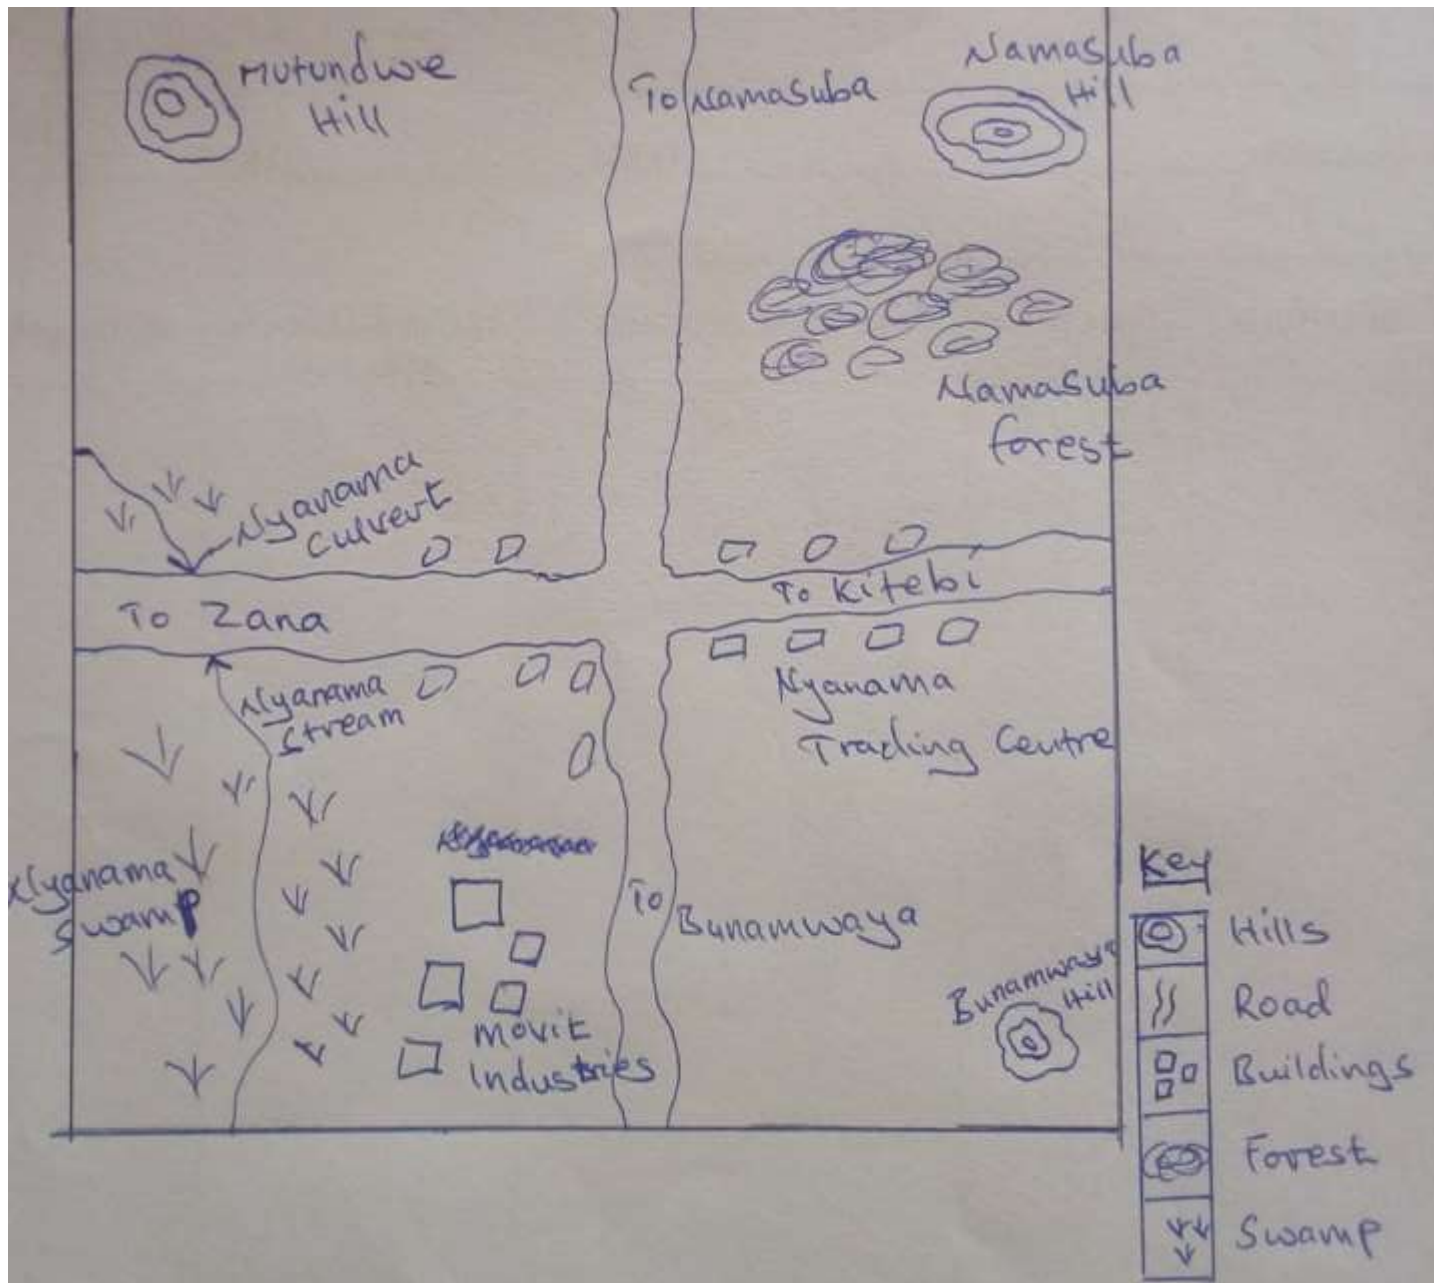 Mutundwe
Hill
To Namasuba
Namasuba
Hill
Namasuba
forest
Nyanama
Culvert
To Zana
To Kitebi
Nyanama
Stream
Nyanama
Trading Centre
Nyanama
Swamp
To Bunamwaya
Bunamwaya
Hill
Movit
Industries
Key
Hills
Road
Buildings
Forest
Swamp